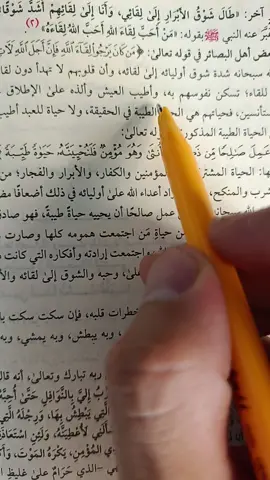 آخر: «طَالَ شَوْقُ الأَبْرَارِ إِلىٰ لِقَائي، وأَنَا إِلىٰ لِقَائِهِمْ أَشَدُّ شَوْقًا
عنه النبي ﷺ بقوله: «مَنْ أَحَبَّ لِقَاءَ اللهِ أَحَبَّ اللهُ لِقَاءَهُ» (٢)
ض أهل البصائر في قوله تعالىٰ: ﴿مَن كَانَ يَرْجُوا لِقَآءَ ٱللَّهِ فَإِنَّ أَجَلَ ٱللَّهِ
سبحانه شدة شوق أوليائه إلىٰ لقائه، وأن قلوبهم لا تهدأ دون لقا
للقاء؛ تسكن نفوسهم به، وأطيب العيش وألذه علىٰ الإطلاق
ستأنسين، فحياتهم هي الطيبة في الحقيقة، ولا حياة للعبد أطيب
الحياة الطيبة المذكورة تعالىٰ:
عَمِلَ صَٰلِحًا مِّن أُنثَىٰ وَهُوَ مُؤْمِنٌ فَلَنُحْيِيَنَّهُۥ حَيَوٰةً طَيِّبَةً
الحياة المشتر ؤمنين والكفار، والأبرار والفجار؛ من
شرب والمنكح، أعداء الله علىٰ أوليائه في ذلك أضعافًا
عمل صالحًا أن يحييه حياةً طيبةً، فهو صادق
حياة مَن اجتمعت همومه كلها وصارت
اجتمعت إرادته وأفكاره التي كانت
وحبه والشوق إلىٰ لقائه والأ
خطرات قلبه، فإن سكت سكت با
وبه يبطش، وبه يمشي، وبه
ربه تبارك وتعالىٰ، أنه قال
إليَّ بالنَّوافِلِ حَتَّىٰ أُحِبَّهُ
يَبْطِشُ بِهَا، وَرِجْلَهُ الَّتِي
لأُعْطِيَنَّهُ، وَلَئِنِ اسْتَعَاذَ
يَكْرَهُ المَوْتَ، وَأَنَا
-الذي حَرَامٌ علىٰ غليظِ